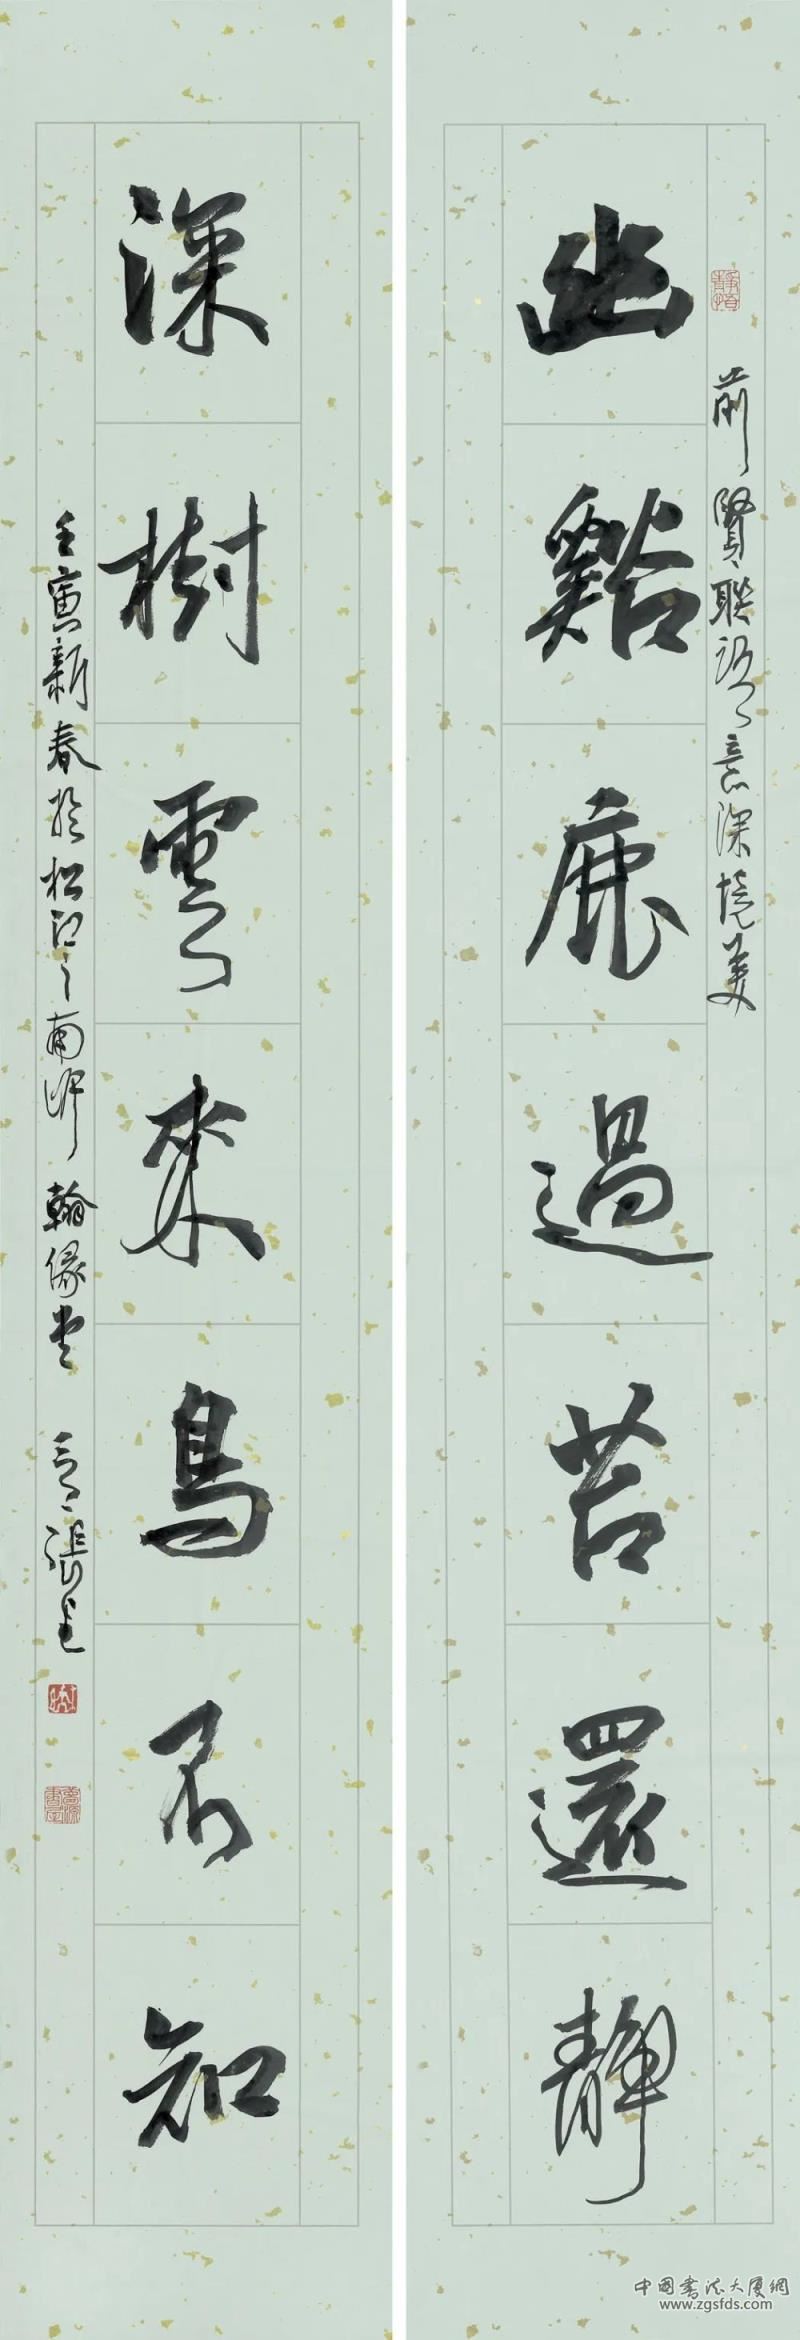 幽谿鹿過苔還靜
前賢聯語意深境美
深樹雲來鳥不知
壬寅新春於松江之南岸翰緣堂
張
中国书法大厦網
www.zgsfds.com